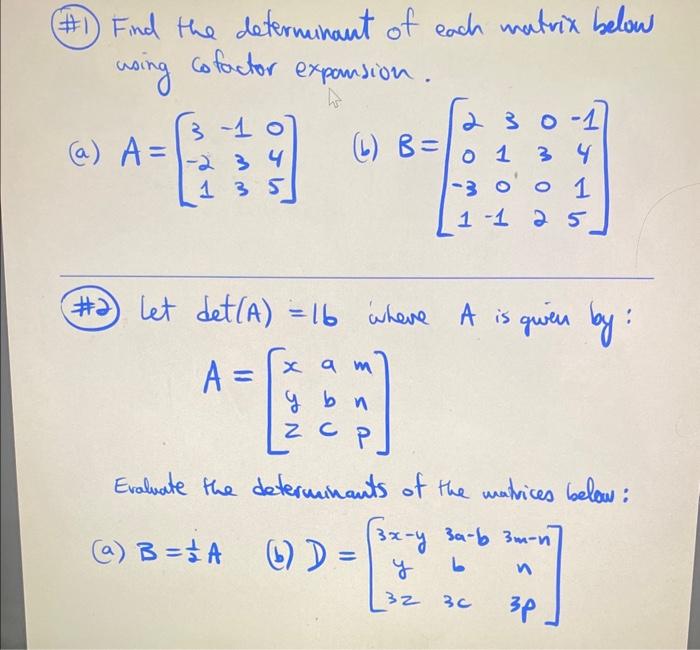 #1 Find the determinant of each matrix below
using cofactor expansion.
(a) A = [3 -1 0
-2 3 4
1 3 5]
(b) B = [2 3 0 -1
0 1 3 4
-3 0 0 1
1 -1 2 5]
#2 Let det(A) = 16 where A is given by:
A = [x a m
y b n
z c p]
Evaluate the determinants of the matrices below:
(a) B = 1/2 A (b) D = [3x-y 3a-b 3m-n
y b n
3z 3c 3p]